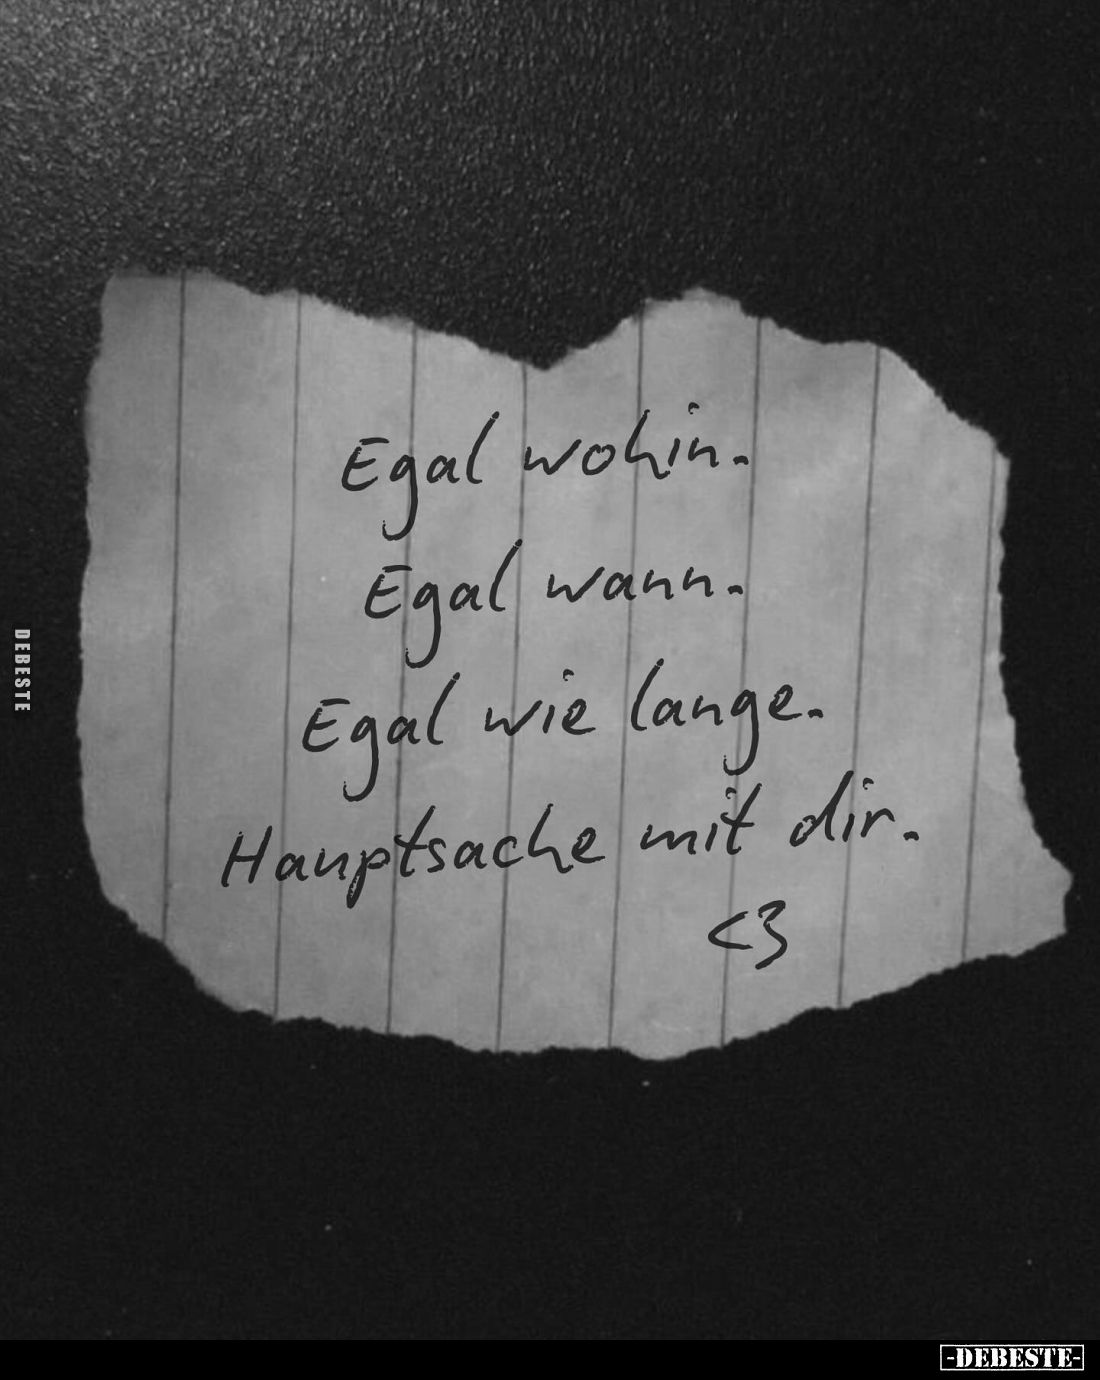 Egal wohin.
Egal wann.
Egal wie lange.
Hauptsache mit dir.
<3
DEBESTE
-DEBESTE-